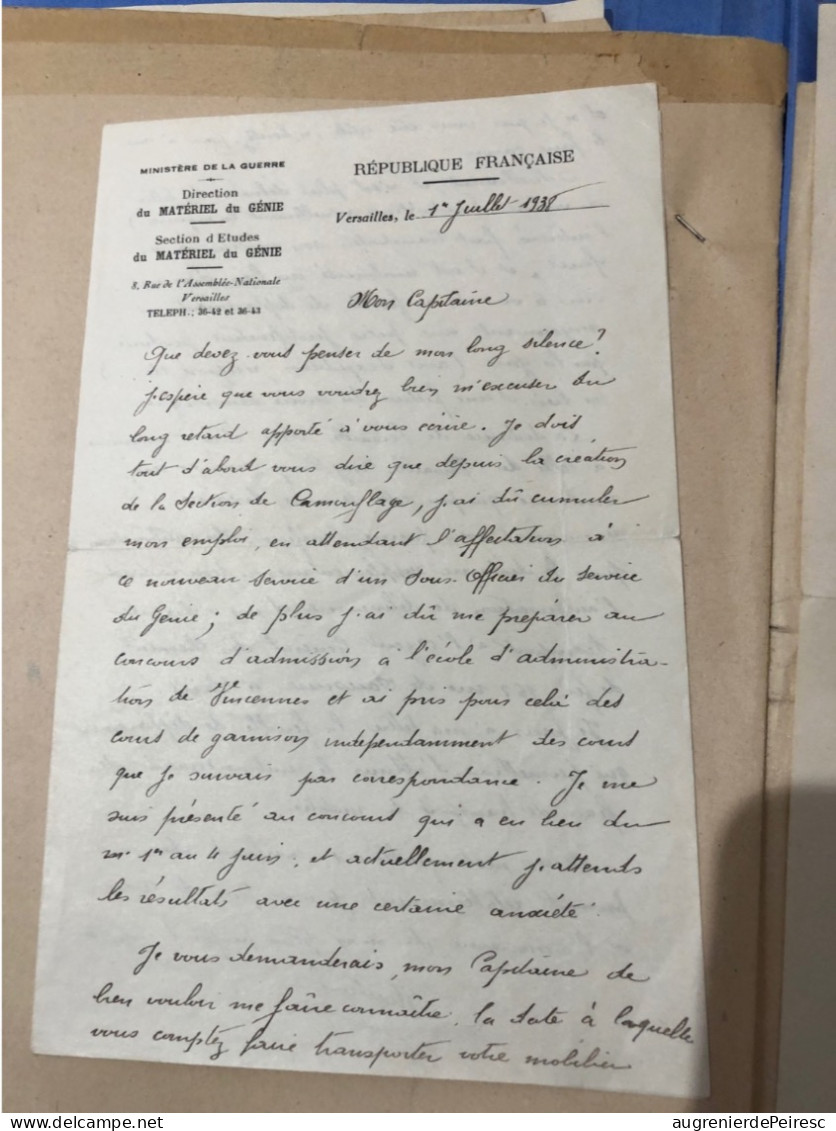 MINISTÈRE DE LA GUERRE
Direction
du MATÉRIEL du GÉNIE
Section d'Etudes
du MATÉRIEL du GÉNIE
8, Rue de l'Assemblée-Nationale
Versailles
TELEPH.: 36-42 et 36-43
RÉPUBLIQUE FRANÇAISE
Versailles, le 1er Juillet 1938
Mon Capitaine
Que devez vous penser de mon long silence?
j'espère que vous voudrez bien m'excuser du
long retard apporté à vous écrire. Je doit
tout d'abord vous dire que depuis la création
de la Section de Camouflage, j'ai dû cumuler
mon emploi, en attendant l'affectation à
ce nouveau service d'un Sous-Officier du Service
du Génie; de plus j'ai dû me préparer au
concours d'admission à l'école d'administra-
tion de Vincennes et ai pris pour celà des
cours de garnison indépendamment des cours
que je suivais par correspondance. Je me
suis présenté au concours qui a eu lieu du
1er au 4 juin, et actuellement j'attends
les résultats avec une certaine anxiété.
Je vous demanderais, mon Capitaine de
bien vouloir me faire connaître, la date à laquelle
vous comptez faire transporter votre mobilier
augrenierdePeiresc